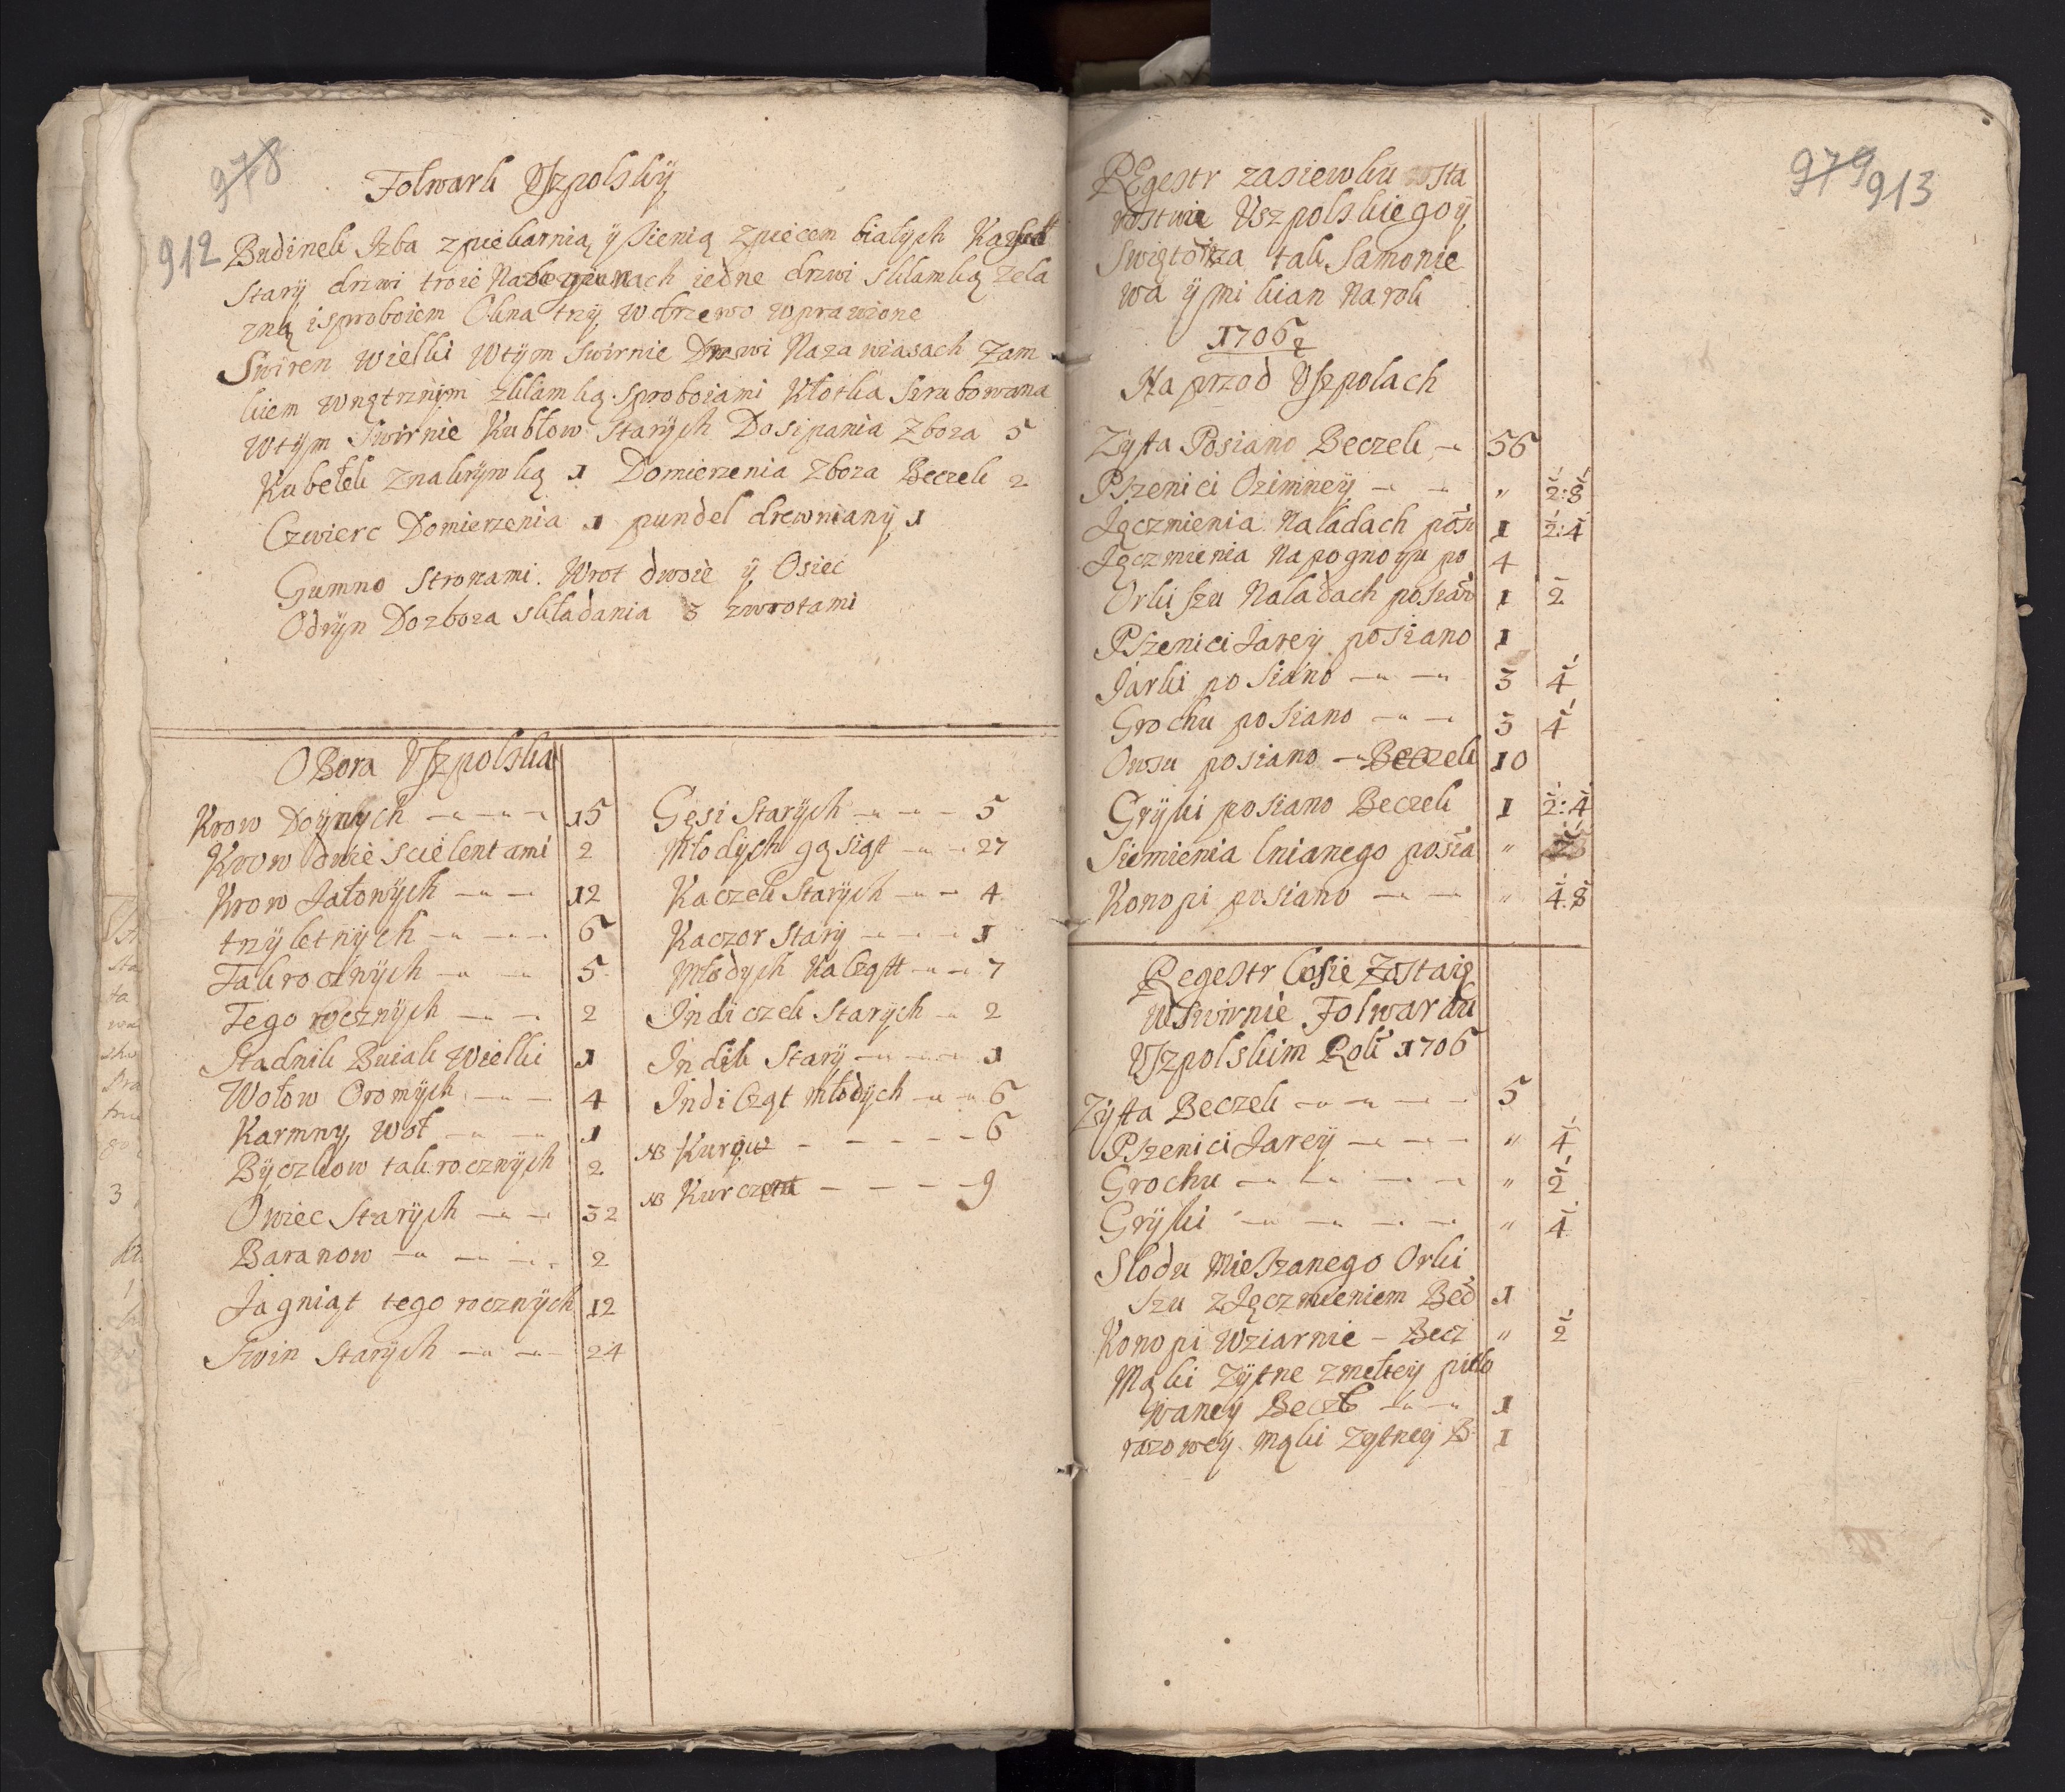 978
912
Folwark Uszpolskÿ
Budinek Izba z piekarnią ÿ sienią z piecem białych
Starÿ drzwi troie Na biegunach iedne drzwi sklamką żela
zną i sproboiem Okna trzÿ W drzewo wprawione
Swiren Wielki Wtÿm Swirnie Drzwi Na zawiasach Zam
kiem wnętrznÿm zklamką sproboiami Kłotka szrubowana
Wtÿm Swirnie Kubłow Starÿch Dosipania Zboza 5
Kubełek znakrÿwką 1 Domierzenia Zboza Beczek 2
Czwierc Domierzenia 1 pundel drewnianÿ 1
Gumno Stronami. Wrot dwoie ÿ Osiec
Odrÿn Dozboza składania 3 zwrotami
OBora Uszpolska
Krow Doÿnÿch 15
Krow dwie scielentami 2
Krow Jałowÿch 12
trzÿletnÿch 6
Takrocznÿch 5
Tego rocznÿch 2
Stadnik Buiak Wielki 1
Wołow Oromÿch 4
Karmnÿ Woł 1
Bÿczkow takrocznÿch 2
Owiec Starÿch 32
Baranow 2
Jagniąt tego rocznÿch 12
Swin Starÿch 24
Gęsi Starÿch 5
Młodÿch gąsiąt 27
Kaczek Starÿch 4
Kaczor Starÿ 1
Młodÿch Kacząt 7
Indiczek Starÿch 2
Indik Starÿ 1
Indicząt Młodÿch 6
NB Kurow 6
NB Kurcząt 9
979 913
REgestr zasiewku wsta
rostwie Uszpolskiego ÿ
Swiątoa tak Samonie
wa ÿ Mikian Na rok
1706
Na przod Uszpolach
Zÿta Posiano Beczek 56
Pszenici Ozimneÿ " 1/2: 1/8
Jęczmienia Naladach posi 1 1/2: 1/4
Jęczmienia Napognoÿu po 4
Orkiszu Naladach posian 1 1/2
Pszenici Jareÿ posiano 1
Jarki posiano 3 1/4
Grochu posiano 3 1/4
Owsu posiano Beczek 10
Grÿki posiano Beczek 1 1/2: 1/4
Siemienia lnianego posia "
Konopi posiano " 1/4: 1/8
Regestr Cosie Zostaią
wswirnie Folwarku
Uszpolskim Rok 1706
Zÿtta Beczek 5
Pszenici Jareÿ " 1/4
Grochu " 1/2
Grÿki " 1/4
Słodu Mieszanego Orki
szu zJęczmieniem Becz 1
Konopi Wziarnie Becz " 1/2
Mąki Zÿtne zmełteÿ pitlo
waneÿ Beczk 1
razoweÿ Mąki Zÿtneÿ B 1